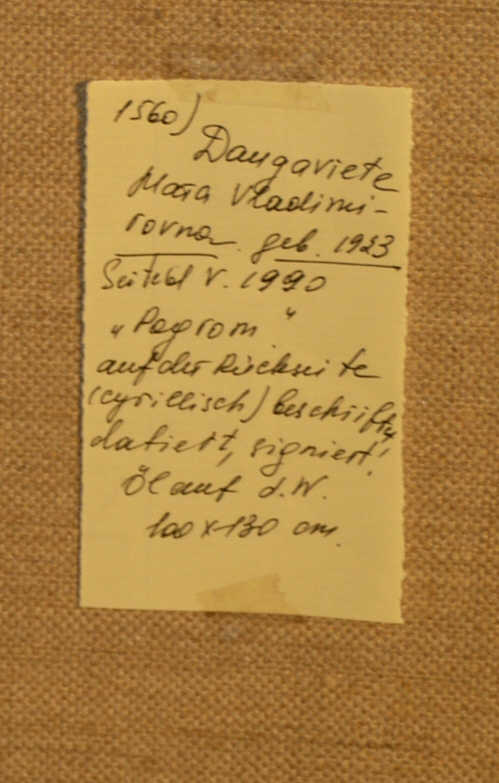 1560)
Daugaviete
Mara Vladimi-
rovna geb. 1923
v. 1990
„Pogrom"
auf der Rückseite
(cyrillisch) beschriftet,
datiert, signiert!
Öl auf d.W.
100 x 130 cm.